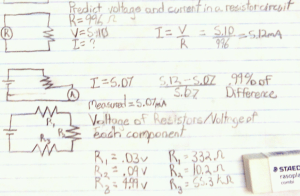 Predict voltage and current in a resistor circuit
R = 996 Ω
V = 5.10
I = ?
I = V/R = 5.10/996 = 5.12mA
R
I = 5.07
5.12 - 5.07 / 5.07
99% of Difference
A
Measured = 5.07mA
Voltage of Resistors/Voltage of each component
R₁
R₂
R₃
R₁ = .03v
R₂ = .09v
R₃ = 4.99v
R₁ = 332Ω
R₂ = 10.2
STAED
rasopla